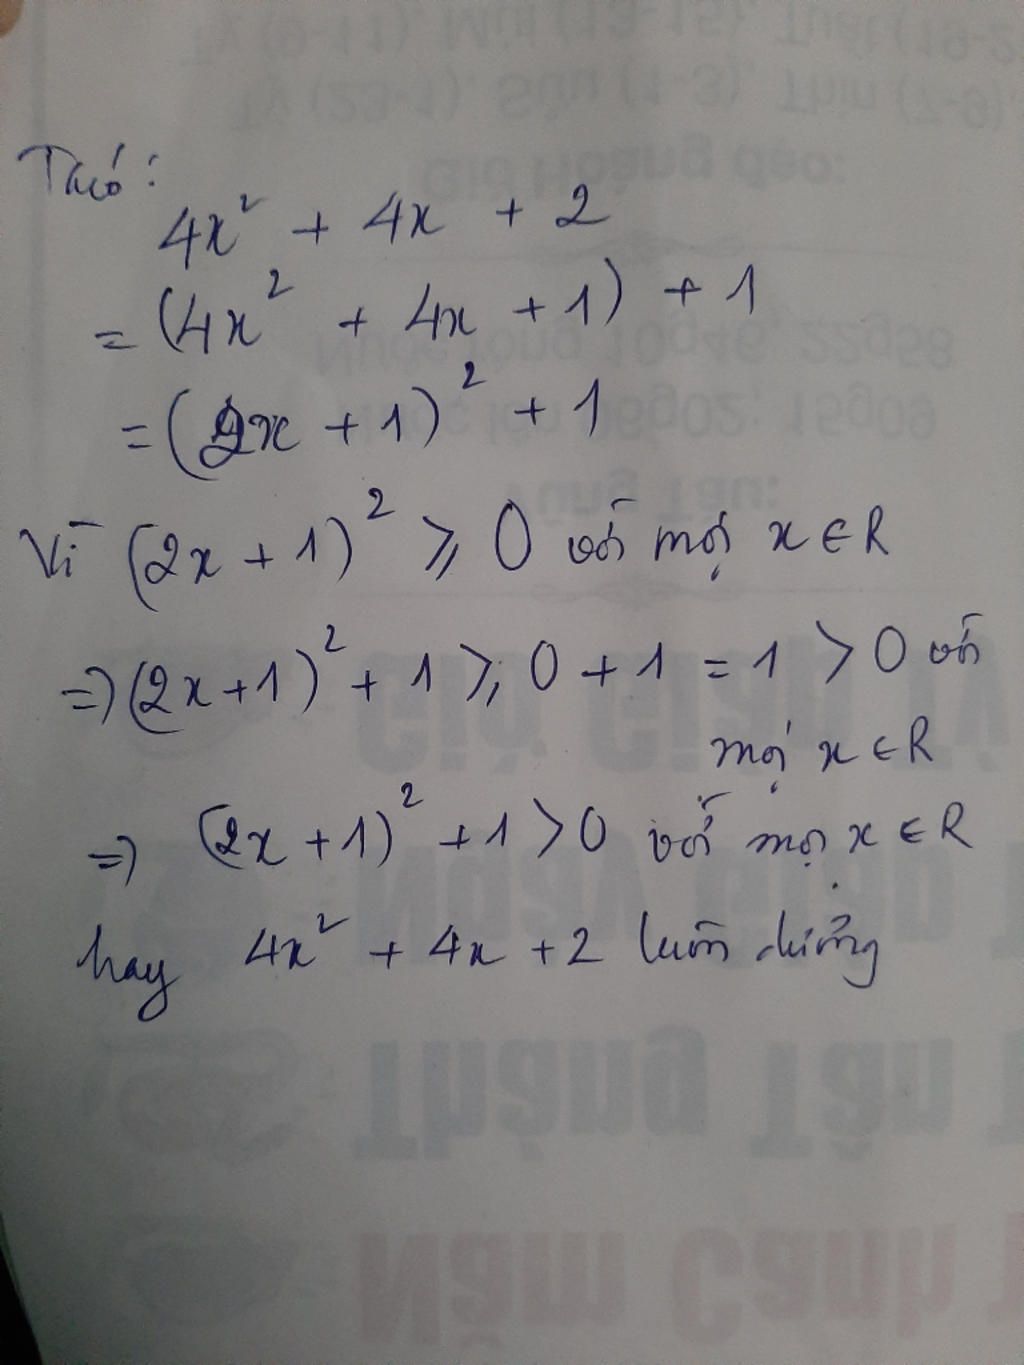 Ta có:
4x² + 4x + 2
= (4x² + 4x + 1) + 1
= (2x + 1)² + 1
Vì (2x + 1)² ≥ 0 với mọi x ∈ R
=> (2x + 1)² + 1 ≥ 0 + 1 = 1 > 0 với
mọi x ∈ R
=> (2x + 1)² + 1 > 0 với mọi x ∈ R
hay 4x² + 4x + 2 luôn dương